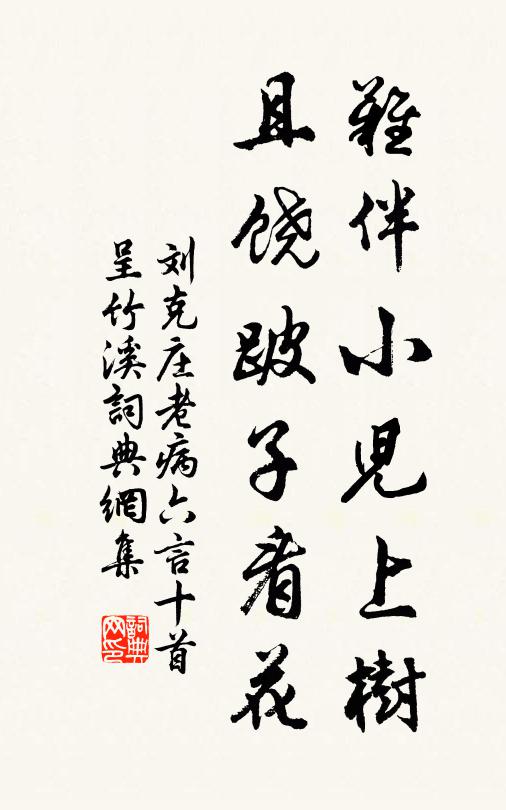 難伴小兒上樹
且饶跛子看花
刘克庄老病六言十首
呈竹溪詞典網集
詞典网印